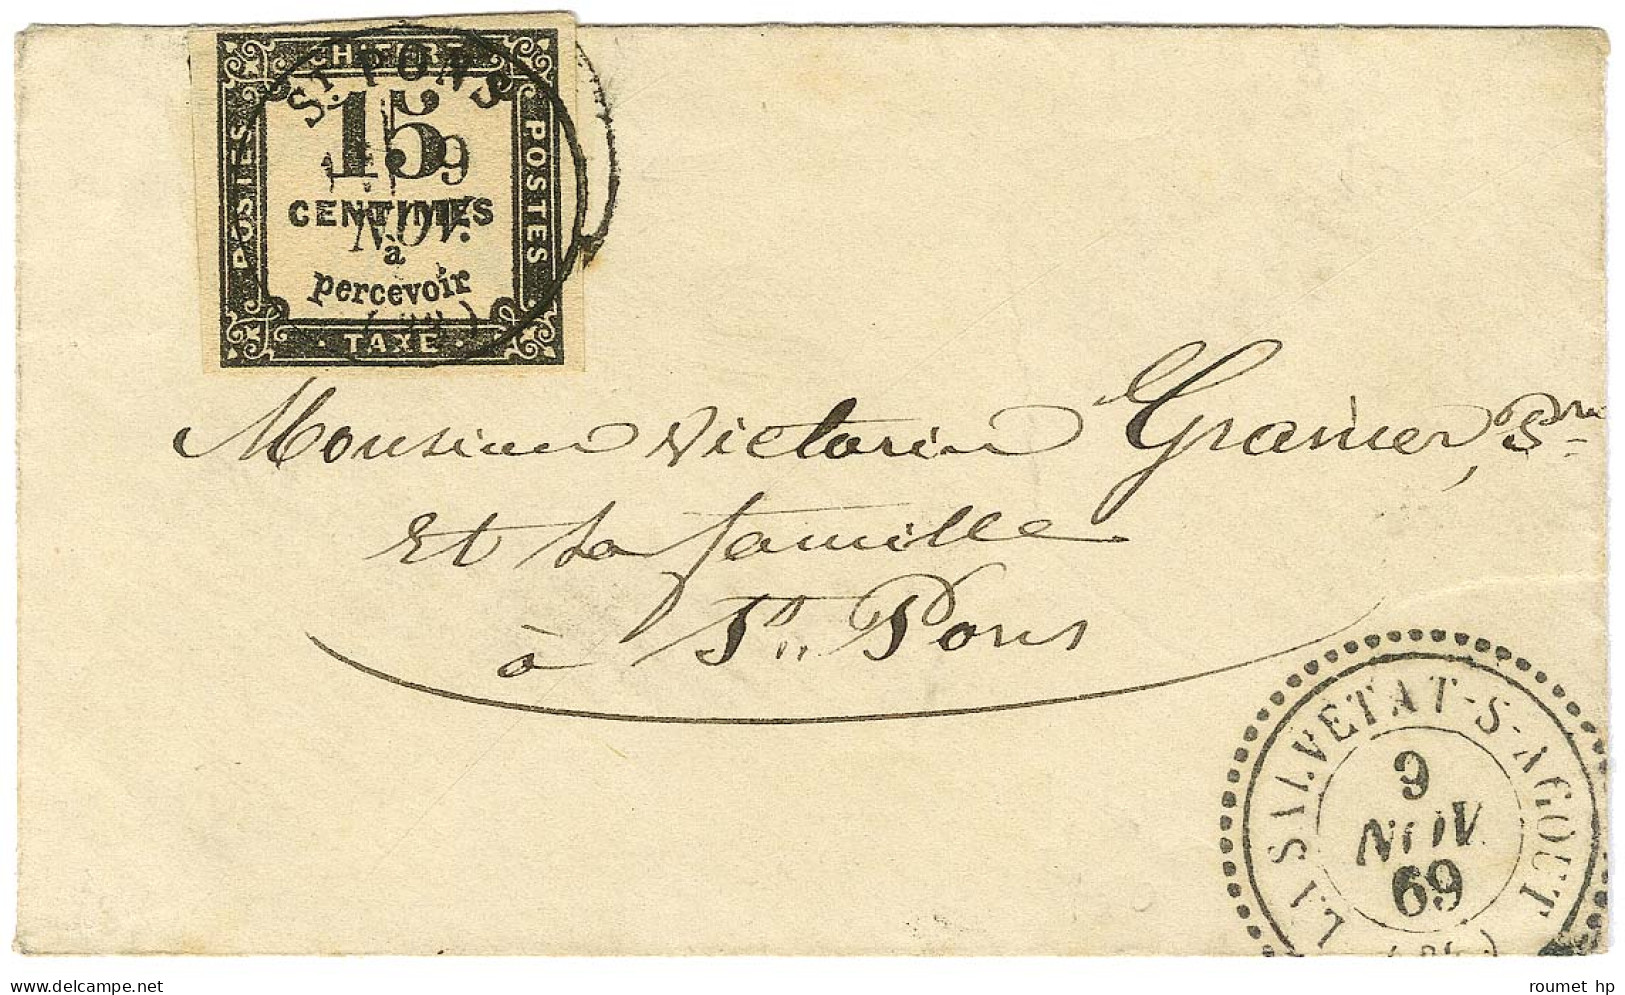 CHIFFRE
POSTES
POSTES
15
CENTIMES
à
percevoir
· TAXE ·
ST. PONS
9
NOV.
Monsieur Victorin Granier, Pre
et sa famille
à St Pons
LA SALVETAT-S-AGOUT
9
NOV.
69
roumet hp